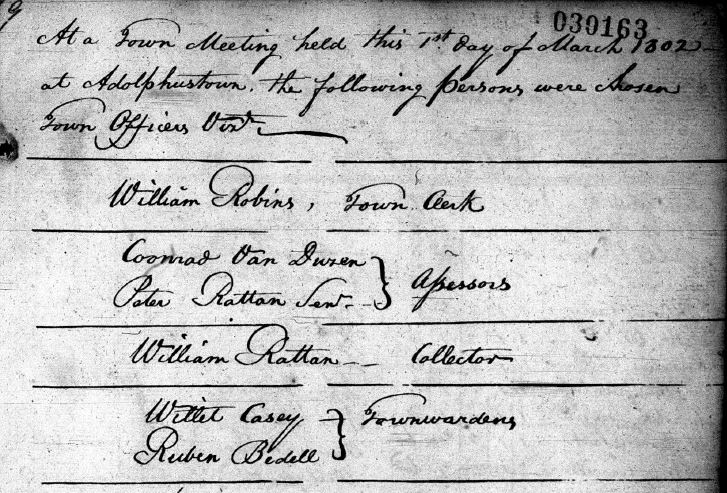 9
039163
At a Town Meeting held this 1st day of March 1802
at Adolphustown. the following persons were chosen
Town Officers Vizt.
William Robins, Town Clerk
Coonrad Van Duzen } Assessors
Peter Rattan Senr.
William Rattan Collector
Willet Casey } Townwardens
Ruben Bedell